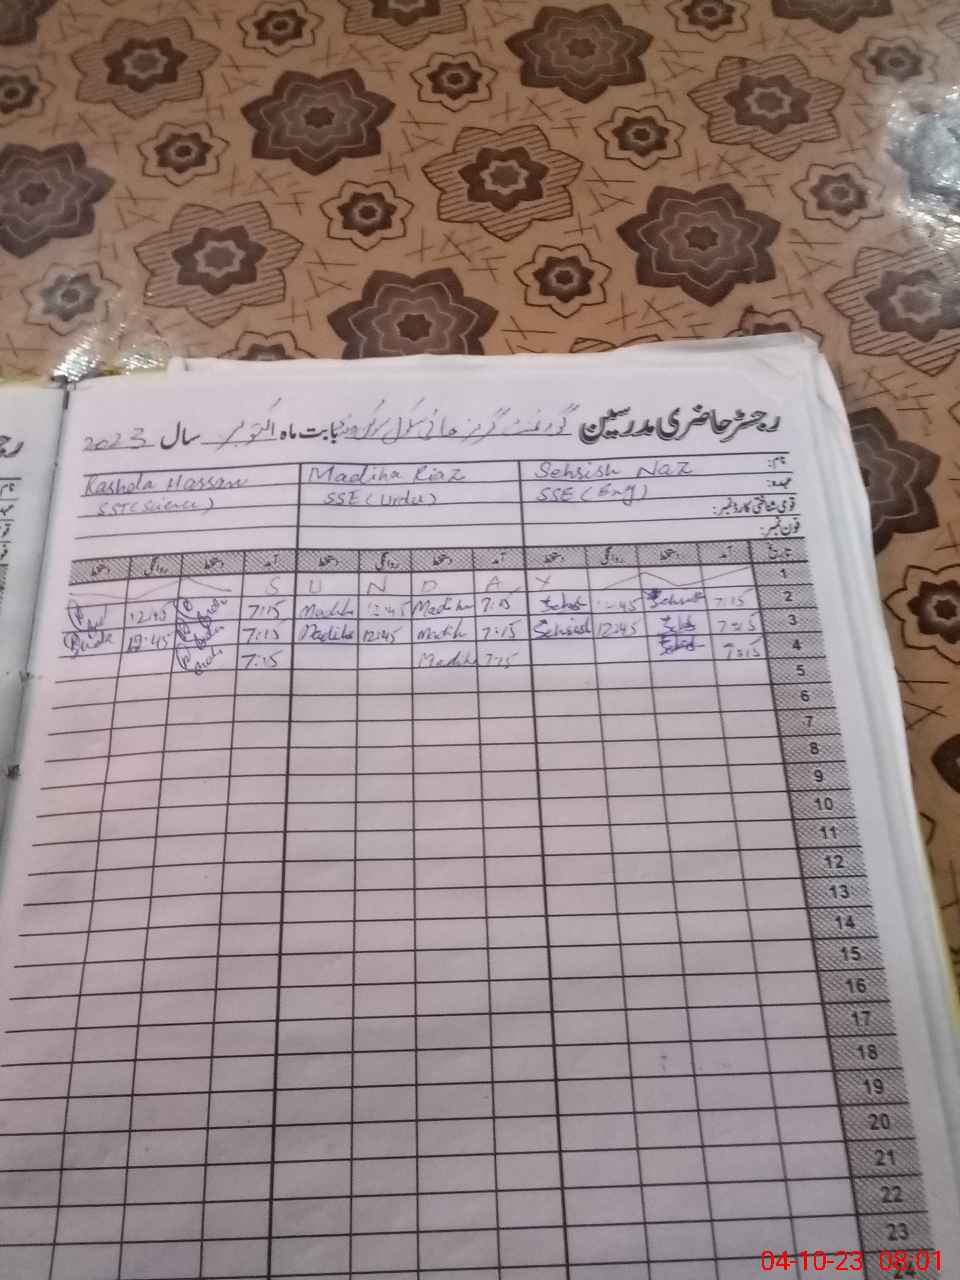 رجسٹر حاضری مدرسین گورنمنٹ گرلز ہائی سکول بابت ماہ اکتوبر سال 2023
نام: Sehsish Naz Madiha Riaz Kashola Hassan
عہدہ: SSE (Eng) SSE (Urdu) SST (Science)
قومی شناختی کارڈ نمبر:
فون نمبر:
تاریخ آمد دستخط روانگی دستخط آمد دستخط روانگی دستخط آمد دستخط روانگی دستخط
1 S U N D A Y
2 7:15 12:45 7:15 Madiha 12:45 Madiha 7:15 12:45
3 7:15 12:45 Sehsish 7:15 Madiha 12:45 Madiha 7:15 12:45
4 7:15 7:15 Madiha 7:15
5
6
7
8
9
10
11
12
13
14
15
16
17
18
19
20
21
22
23
24
04-10-23 08:01